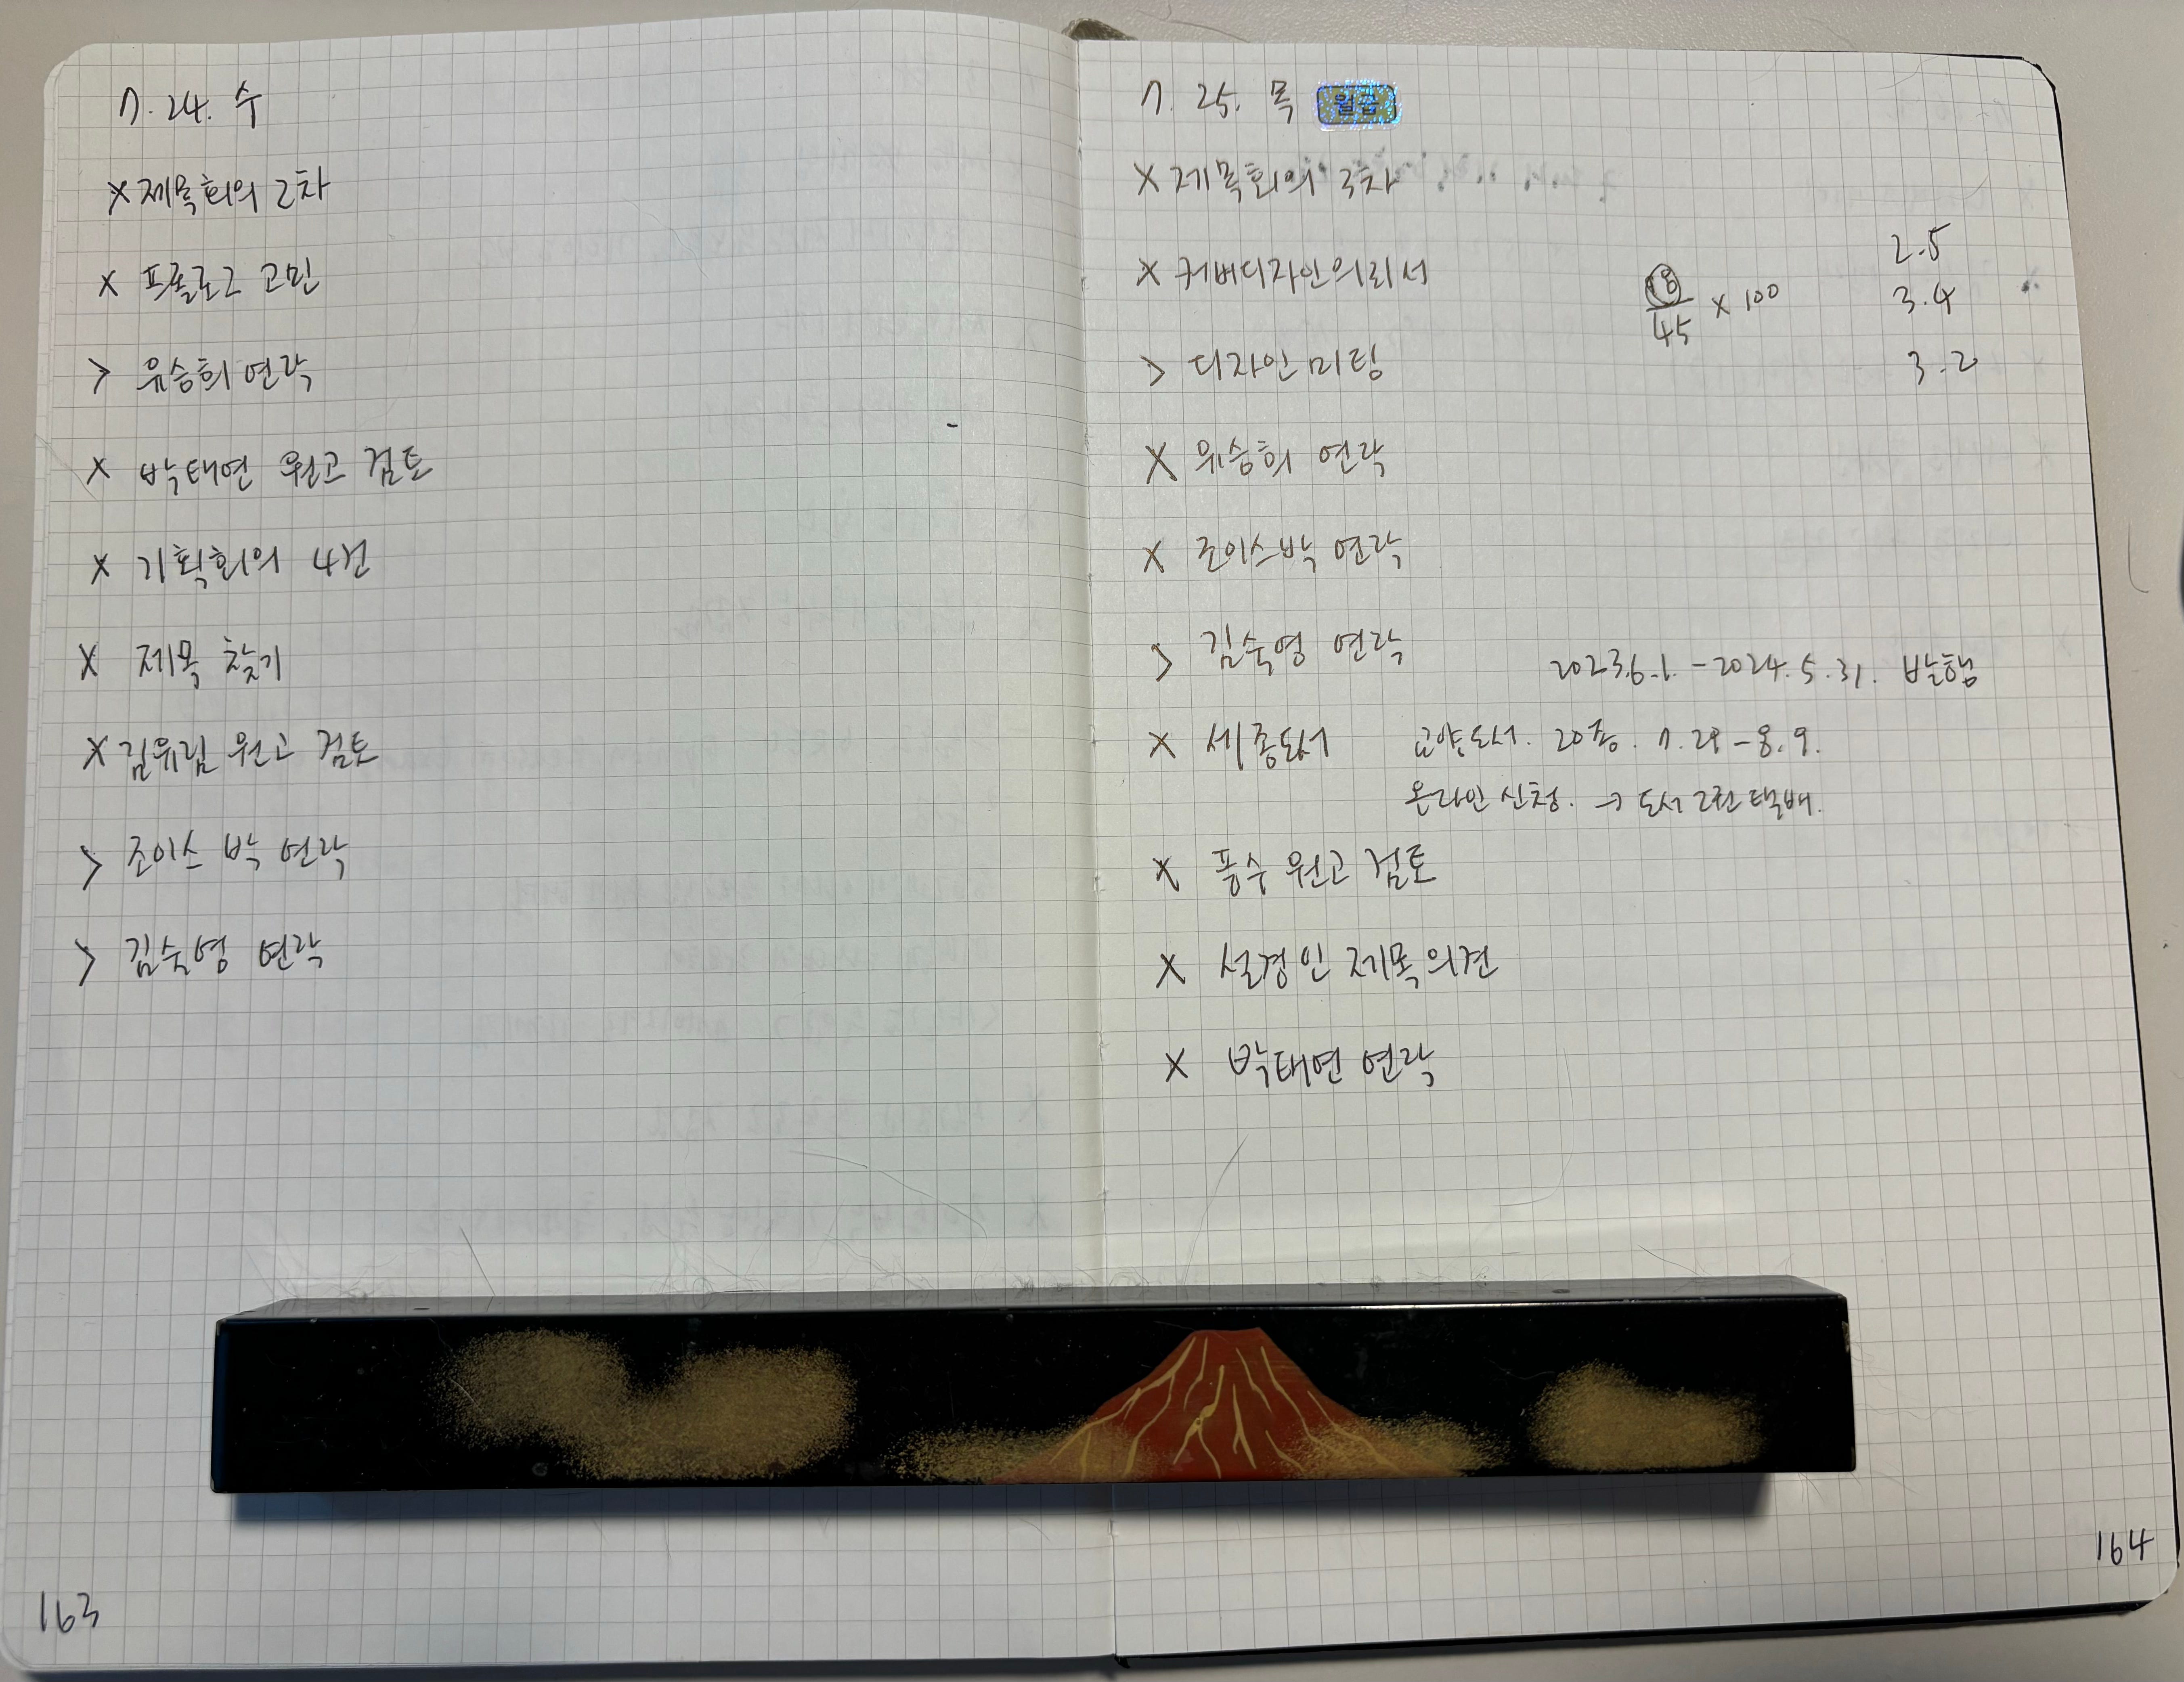 7. 24. 수
× 제목회의 2차
× 프롤로그 고민
> 유승희 연락
× 박태연 원고 검토
× 기획회의 4건
× 제목 찾기
× 김유림 원고 검토
> 조이스 박 연락
> 김숙영 연락
163
7. 25. 목 월급
× 제목회의 3차
× 커버디자인의뢰서
18/45 × 100
2.5
3.4
3.2
> 디자인 미팅
× 유승희 연락
× 조이스박 연락
> 김숙영 연락
2023.6.1. - 2024.5.31. 발행
× 세종도서 교양도서. 20종. 7.29 - 8.9.
온라인 신청. → 도서 2권 택배.
× 풍수 원고 검토
× 설경인 제목의견
× 박태연 연락
164